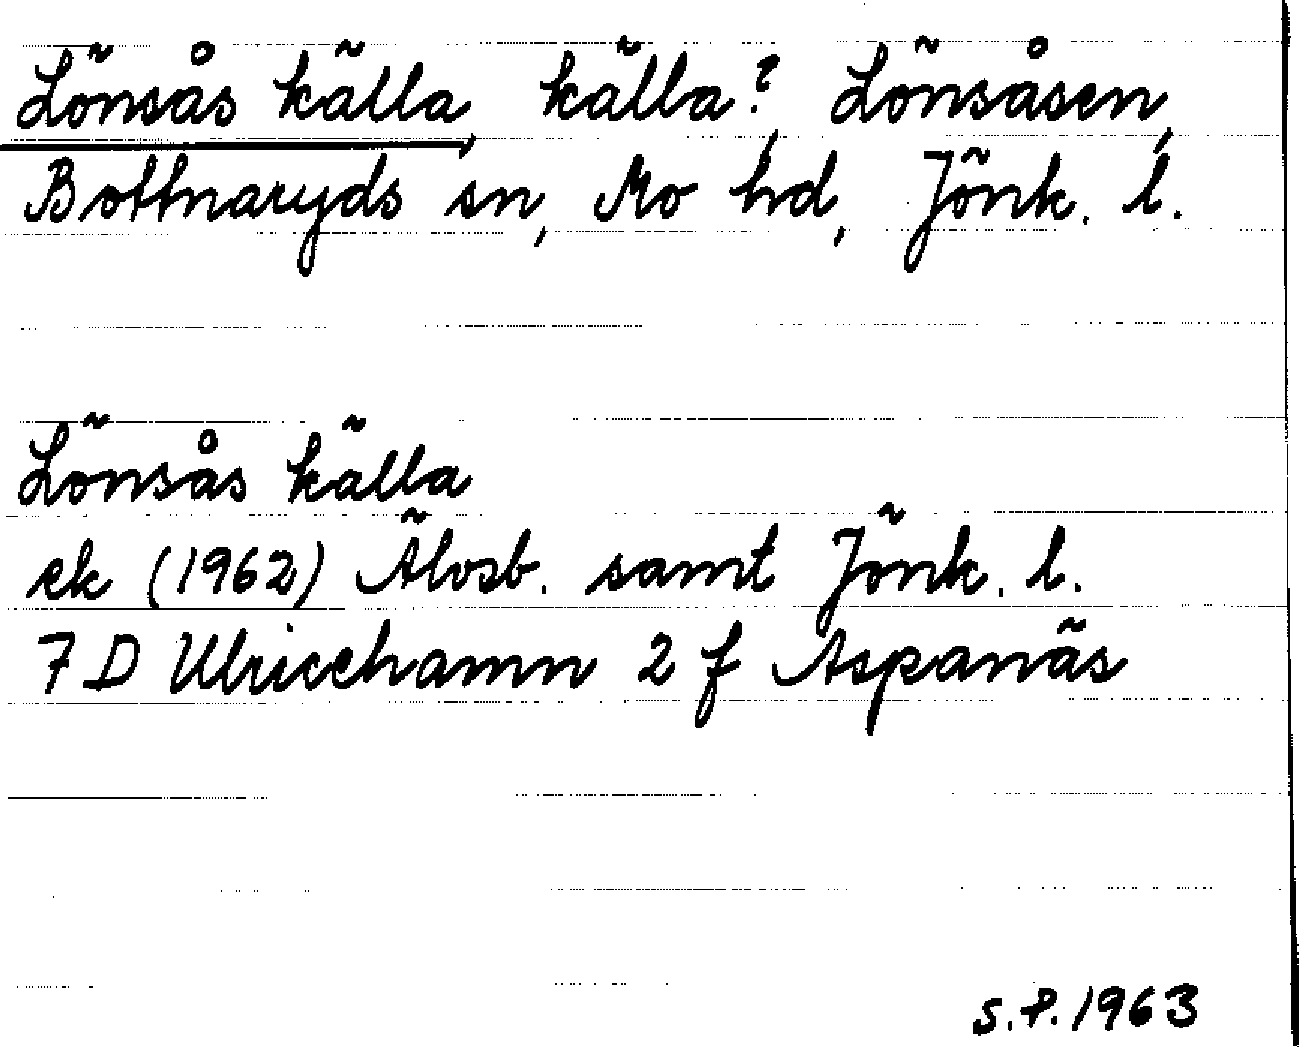 Lönsås källa, källa?, Lönsåsen,
Bottnaryds sn, Mo hd, Jönk. l.
Lönsås källa
ek (1962) Älvsb. samt Jönk. l.
7 D Ulricehamn 2 f Aspanäs
S.P. 1963